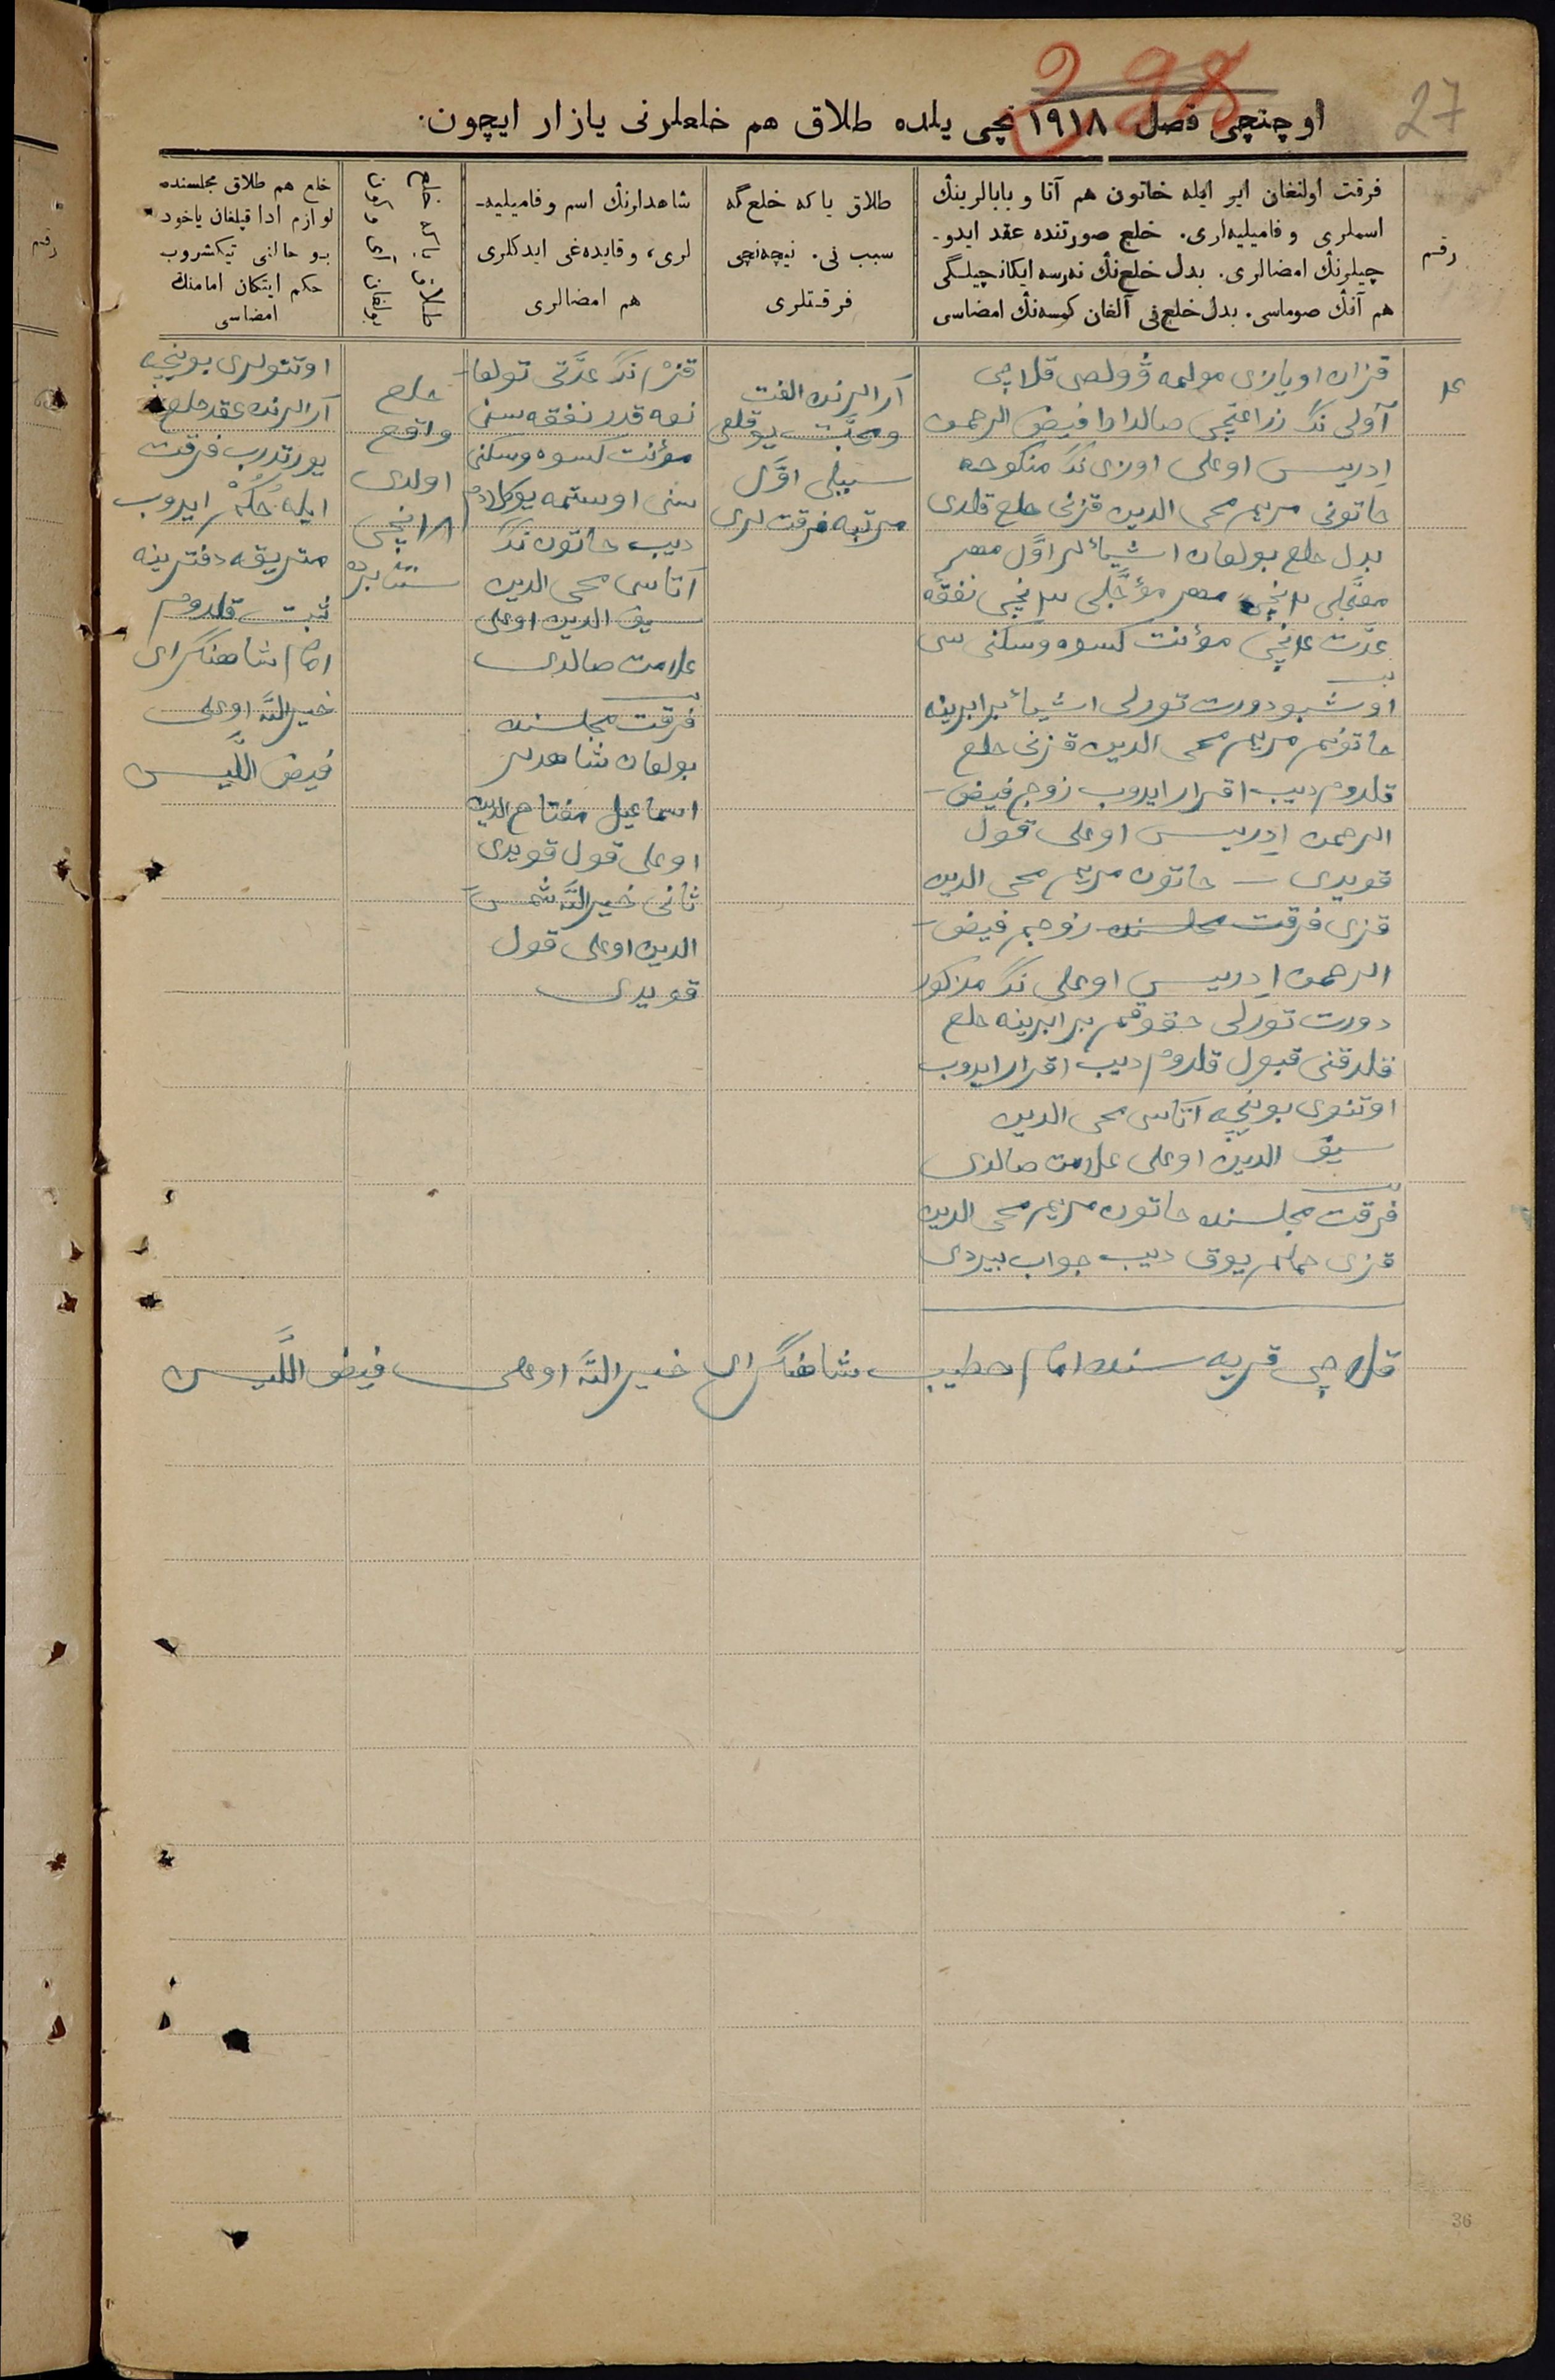 298
27
اوچنچی فصل ۱۹۱۸ نچی یلده طلاق هم خلعلرنی یازار ایچون.
رقم
فرقت اولنغان ایر ایله خاتون هم آتا و بابالرینڭ
اسملری و فامیلیه‌لری. خلع صورتنده عقد ایدو-
چیلرنڭ امضالری. بدل خلع‌نڭ نه‌رسه ایکانچیلگی
هم آنڭ صوماسی. بدل خلع‌نی آلغان کمسه‌نڭ امضاسی
طلاق یا که خلع گه
سبب نی. نیچه‌نچی
فرقتلری
شاهدلرنڭ اسم و فامیلیه-
لری، و قایده‌غی ایدکلری
هم امضالری
طلاق یا که خلع
بولغان آی و کون
خلع هم طلاق مجلسنده
لوازم ادا قیلغان یاخود
بو حالنی تیکشروب
حکم ایتکان امامنڭ
امضاسی
قزان اویازی مولمه وولصی قلاچی
آولی نڭ زراعتچی صالدادا فیض الرحمن
اِدریس اوغلی اوزی نڭ منکوحه
خاتونی مریم محی الدین قزنی خلع قلدی
بدل خلع بولغان اشیائلر اوّل مهر
معجّلی ۲نچی مهر مؤجّلی ۳نچی نفقهٔ
عدّت ۴نچی مؤنت کسوه وسکنی سی
اوشبو دورت تورلی اشیائ برابرینه
خاتونم مریم محی الدین قزنی خلع
قلدوم دیب اقرار ایدوب زوج فیض-
الرحمن اِدریس اوغلی قول
قویدی — خاتون مریم محی الدین
قزی فرقت مجلسنده زوجم فیض-
الرحمن اِدریس اوغلی نڭ مذکور
دورت تورلی حقوقم برابرینه خلع
قلدقنی قبول قلدوم دیب اقرار ایدوب
اوتنوی بوینچه آتاسی محی الدین
سیف الدین اوغلی علامت صالدی
فرقت مجلسنده خاتون مریم محی الدین
قزی حملم یوق دیب جواب بیردی
آرالرنده الفت
ومحبّت یوقلغی
سببلی اوّل
مرتبه فرقت لری
قزم نڭ عدّتی تولغا-
نعه قدر نفقه سنی
مؤنت کسوه وسکنی
سنی اوستمه یوکلادم
دیب خاتون نڭ
آتاسی محی الدین
سیف الدین اوغلی
علامت صالدی
فرقت مجلسنده
بولغان شاهدلر
اسماعیل مفتاح الدین
اوغلی قول قویدی
ثانی خیر اللّٰه شمس-
الدین اوغلی قول
قویدی
خلع
واقع
اولدی
۱۸نچی
سنتابرده
اوتنولری بوینچه
آرالرنده عقد خلع
یورتدرب فرقت
ایله حُکم ایدوب
متریقه دفترینه
ثبت قلدوم
امام شاهنگرای
خیر اللّٰه اوغلی
فیض اللّیس
قلاچی قریه سنده امام خطیب شاهنگرای خیر اللّٰه اوغلی فیض اللّیس
36